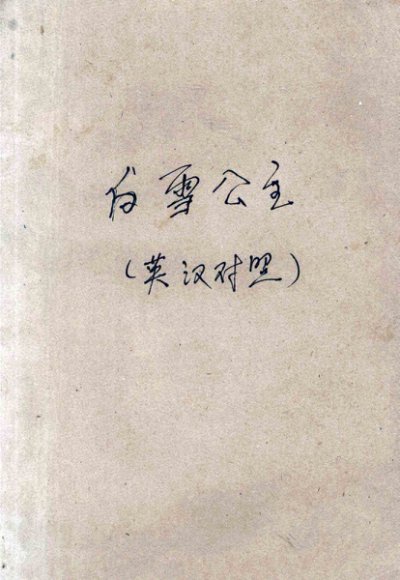 白雪公主
（英汉对照）